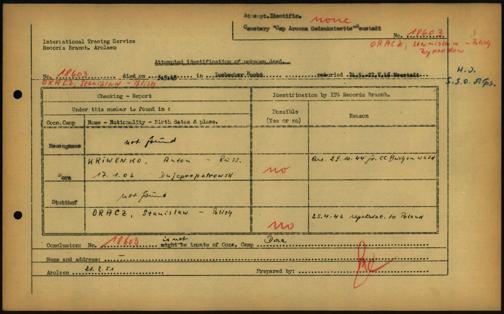 Attempt.Identific. none
Cemetery "Cap Arcona Gedenkstätte" Neustadt
International Tracing Service
Records Branch, Arolsen
No. 18603
ORACZ, Stanislaw - Polish
Attempted identification of unknown dead.
No. 18603 died on in Luebecker Bucht reburied Neustadt
ORACZ, Stanislaw - Polish
H.J.
Checking - Report
Identification by ITS Records Branch.
Under this number to found in :
Possible
(Yes or no)
Reason
Conc.Camp
Name - Nationality - Birth dates & place.
Neuengamme
not found
KRIWENKO, Anton - Russ.
no
17.1.06 Dnjepropetrowsk
Stutthof
not found
ORACZ, Stanislaw - Polish
no
25.4.46 repatriat. to Poland
Conclusion: No. 18603 is not might be inmate of Conc. Camp Dora
Name and address: -
Arolsen Prepared by: